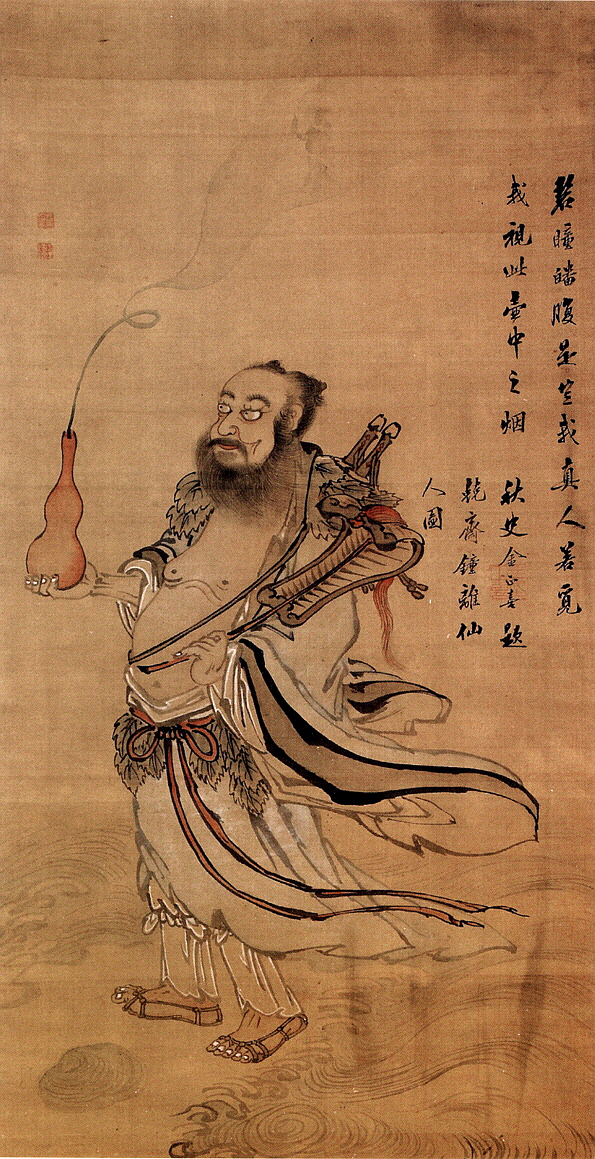 碧瞳皤腹是豈我真人若覓
我視此壺中之烟
秋史金正喜題
兢齋鐘離仙
人圖